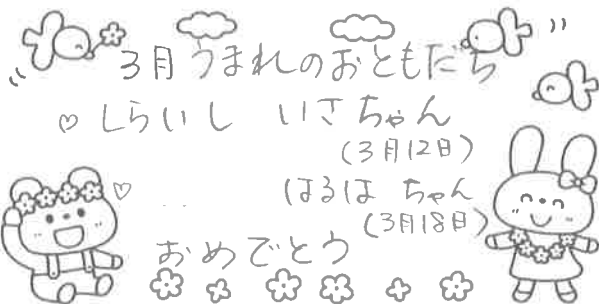 3月うまれのおともだち
♡ しらいし いさちゃん
(3月12日)
♡ はるは ちゃん
(3月18日)
おめでとう